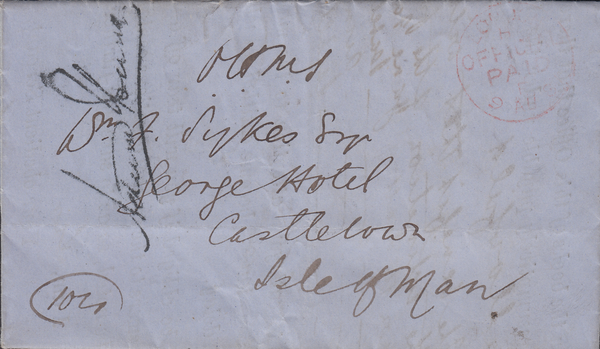 OHMS
Wm J. Sykes Esqr
George Hotel
Castletown
Isle of Man
OFFICIAL
PAID